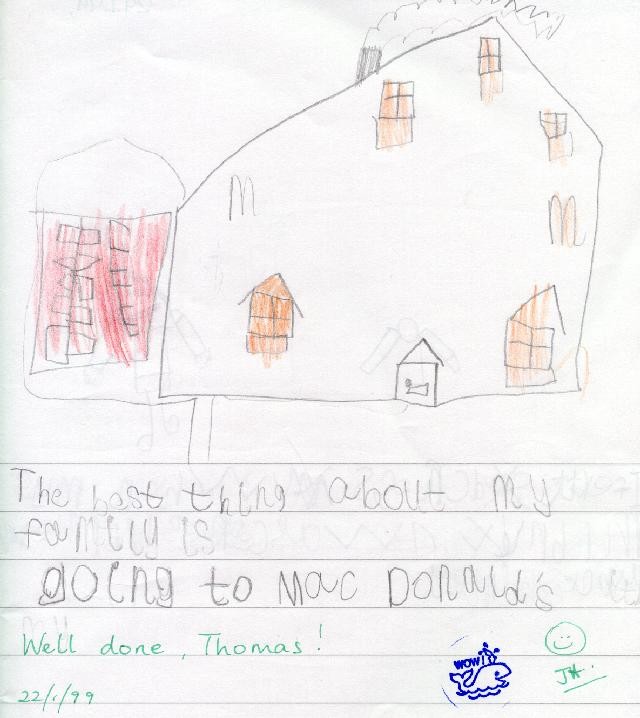 m
m
The best thing about my
family is
going to Mac Donald's
Well done, Thomas!
wow!
JH.
22/1/99